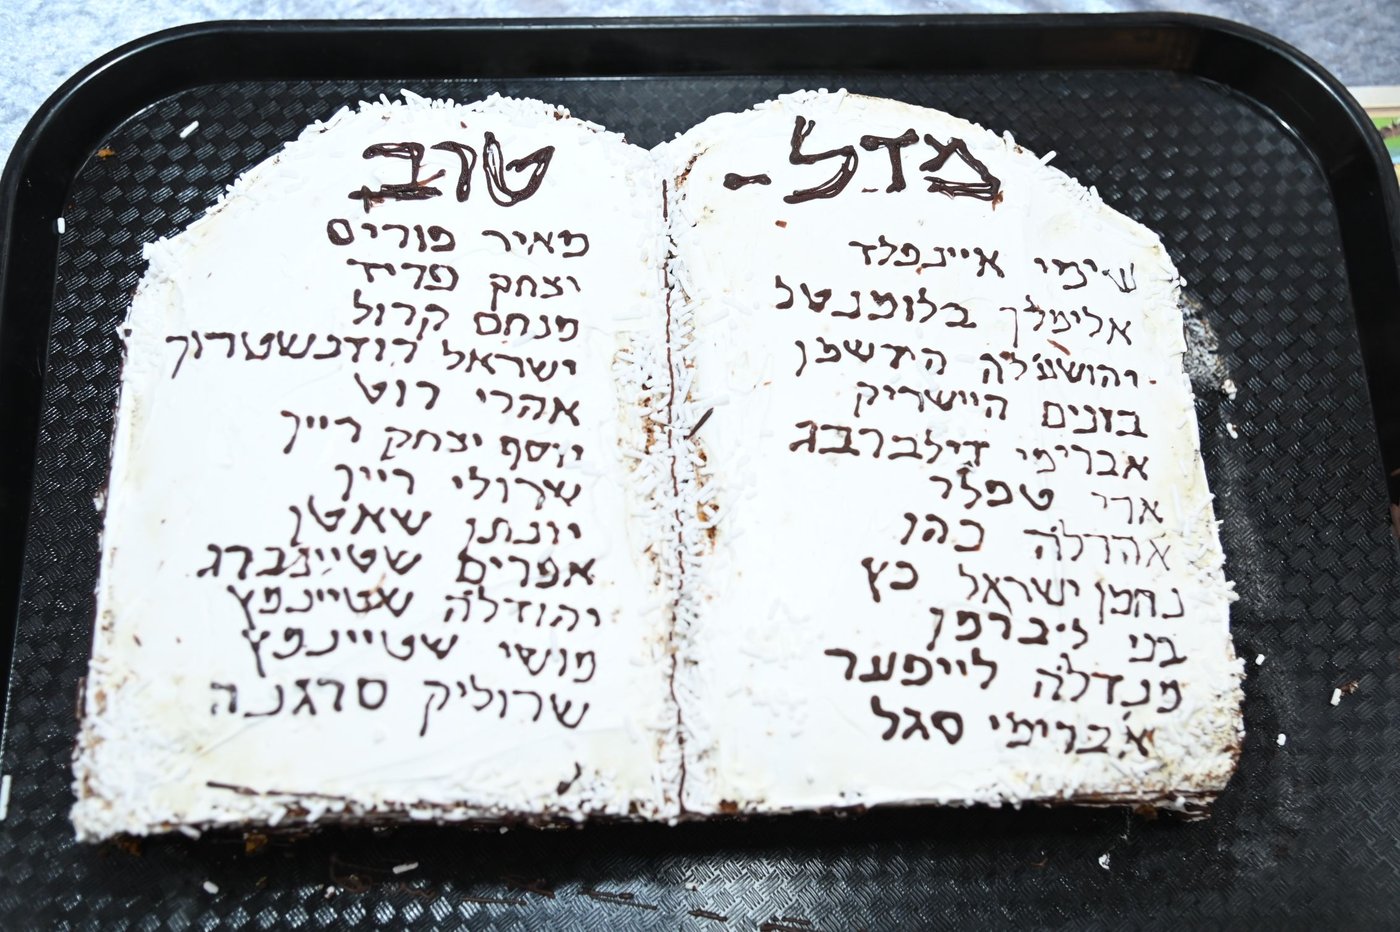 מזל -
שימי איינפלד
אלימלך בלומנטל
יהושעל'ה הירשמן
בונים היישריק
אברימי זילברברג
ארי טפלר
אהרל'ה כהן
נחמן ישראל כץ
בני ליברמן
מנדל'ה לייפער
אברימי סגל
טוב
מאיר פורים
יצחק פריד
מנחם קרול
ישראל רוזנשטרוך
אהרי רוט
יוסף יצחק רייך
שרולי רייך
יונתן שאטן
אפרים שטיינברג
יהודל'ה שטיינמץ
מושי שטיינמץ
שרוליק סרגנה